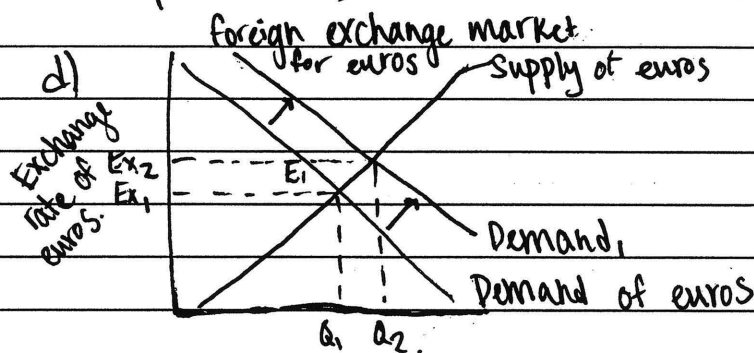 foreign exchange market
for euros
d)
Supply of euros
Exchange
rate of
euros.
Ex₂
Ex₁
E₁
Demand₁
Demand of euros
Q₁ Q₂.